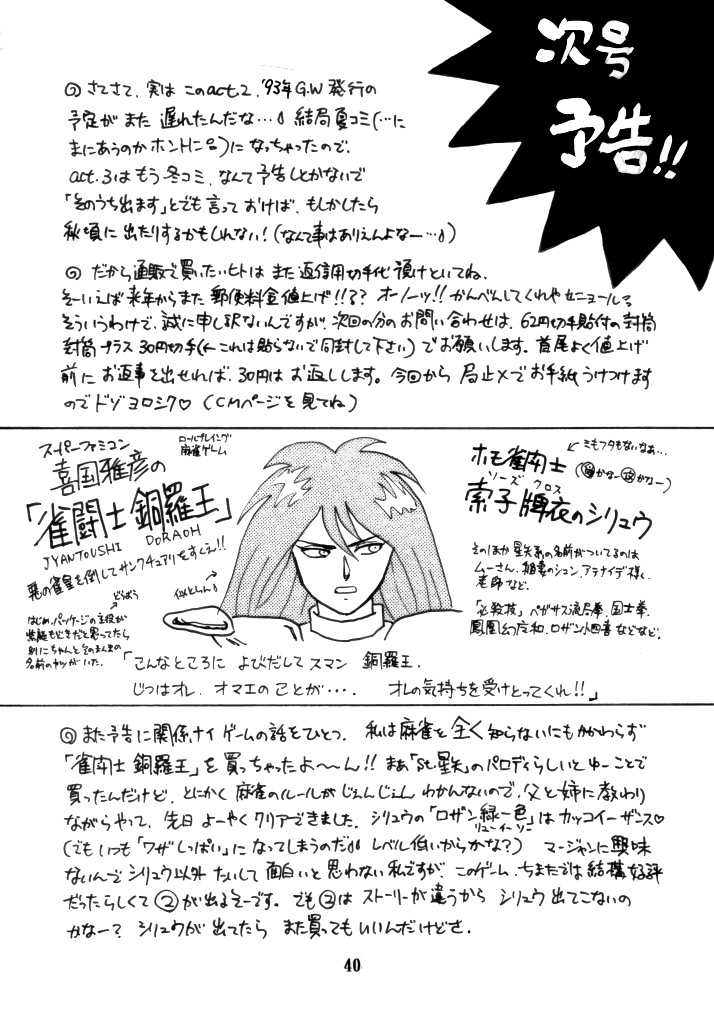 次号
予告!!
◎ さてさて、実は このact2、'93年G.W発行の
予定が また 遅れたんだな…。結局夏コミ(…に
まにあうのか ホントに)に なっちゃったので、
act.3はもう冬コミ、なんて予告しとかないで
「そのうち出ます」とでも言って おけば、もしかしたら
秋頃に 出たりするかもしれない!(なんて事はありえんよなー…)
◎ だから通販で買いたいヒトは また返信用切手代 預けといてね、
そーいえば 来年からまた 郵便料金値上げ!!?? オーノーッ!! かんべんしてくれや セニョール
そういうわけで、誠に申し訳ないんですが、次回の分のお問い合わせは、62円切手貼付の封筒
封筒プラス 30円切手(←これは貼らないで同封して下さい)でお願いします。首尾よく値上げ
前に お返事を出せれば、30円は お返しします。今回から 局止メでお手紙うけつけます
のでドゾヨロシク♡ (CMページを見てね)
スーパーファミコン
ロールプレイング
麻雀ゲーム
喜国雅彦の
「雀闘士 銅羅王」
JYANTOUSHI DORAOH
悪の雀皇を倒してサンクチュアリをすくえ!!
どらおう
はじめ、パッケージの主役が
紫龍もどきだと思ってたら
別にちゃんとそのまんまの
名前のヤツがいた。
似とらん
ミもフタもないなぁ…
ホモ雀闘士
ソーズ クロス
索子牌衣のシリュウ
そのほか 星矢系の名前がついてるのは
ムーさん、相妻のシュン、アテナイデ様、
老師など。
「必殺技」ペガサス流局拳、国士拳、
鳳凰幻応和、ロザント四喜などなど。
「こんなところに よびだして スマン 銅羅王、
じつはオレ、オマエのことが…、 オレの気持ちを受けとってくれ!!」
◎ また予告に関係ナイ ゲームの話をひとつ、 私は麻雀を全く知らないにもかかわらず
「雀闘士 銅羅王」を買っちゃったよ〜〜ん!! まぁ「St.星矢」のパロディらしいとゆーことで
買ったんだけど、とにかく 麻雀のルールが じぇんじぇん わかんないので、父と姉に教わり
ながらやって、先日 よーやくクリアできました。シリュウの「ロザン緑一色」は カッコイーザンス♡
リューイーソー
(でも いつも「ワザ しっぱい」に なってしまうのだ レベル低いからかな?) マージャンに興味
ないんで シリュウ以外 たいして 面白いと 思わない私ですが、このゲーム、ちまたでは結構好評
だったらしくて②が出るそーです。でも②は ストーリーが違うから シリュウ 出てこないの
かなー? シリュウが 出てたら また買っても いいんだけどさ、
40